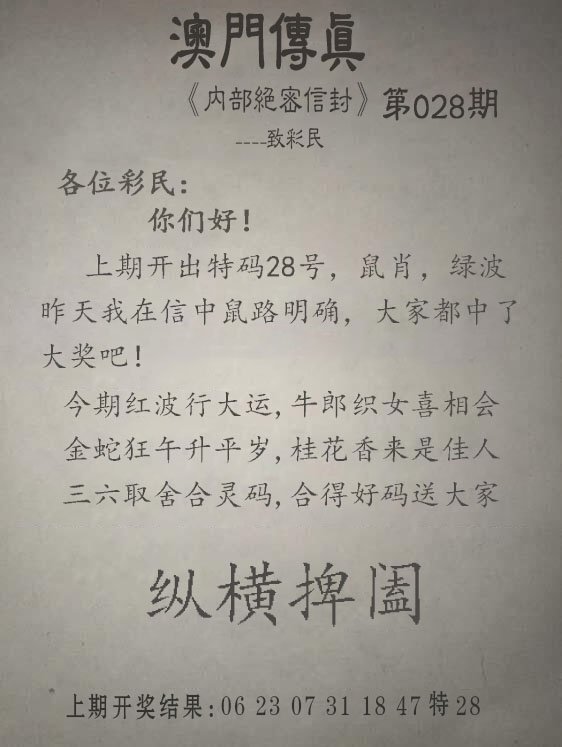 澳門傳眞
《内部絕密信封》第028期
----致彩民
各位彩民:
你们好!
上期开出特码28号，鼠肖，绿波
昨天我在信中鼠路明确，大家都中了
大奖吧!
今期红波行大运,牛郎织女喜相会
金蛇狂午升平岁,桂花香来是佳人
三六取舍合灵码,合得好码送大家
纵横捭阖
上期开奖结果:06 23 07 31 18 47特28